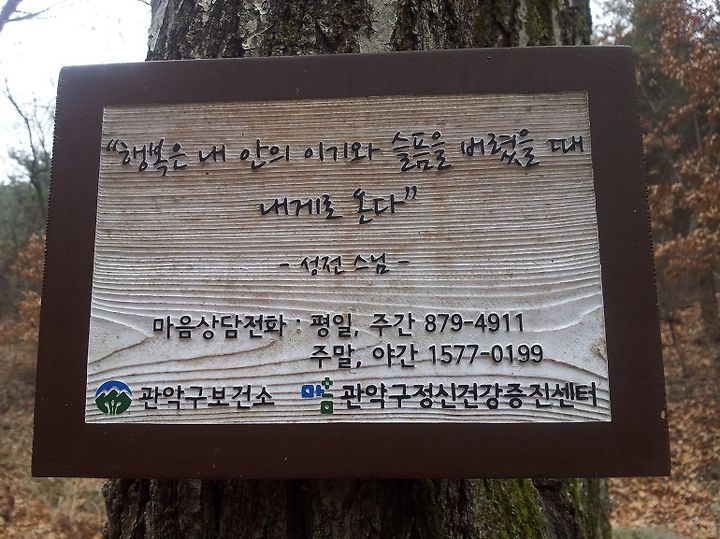 "행복은 내 안의 이기와 슬픔을 버렸을 때
내게로 온다"
- 성전 스님 -
마음상담전화 : 평일, 주간 879-4911
주말, 야간 1577-0199
관악구보건소 마음 관악구정신건강증진센터